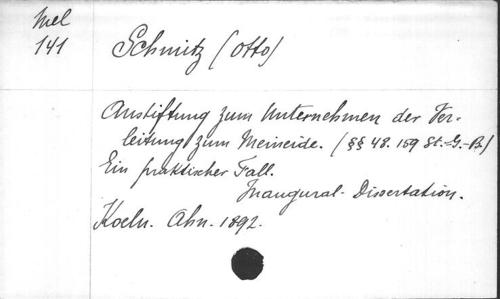 Mel
141
Schmitz (Otto)
Anstiftung zum Unternehmen der Ver-
leitung zum Meineide. (§§ 48. 159 St.-G.-B.)
Ein praktischer Fall.
Inaugural-Dissertation.
Koeln. Ahn. 1892.